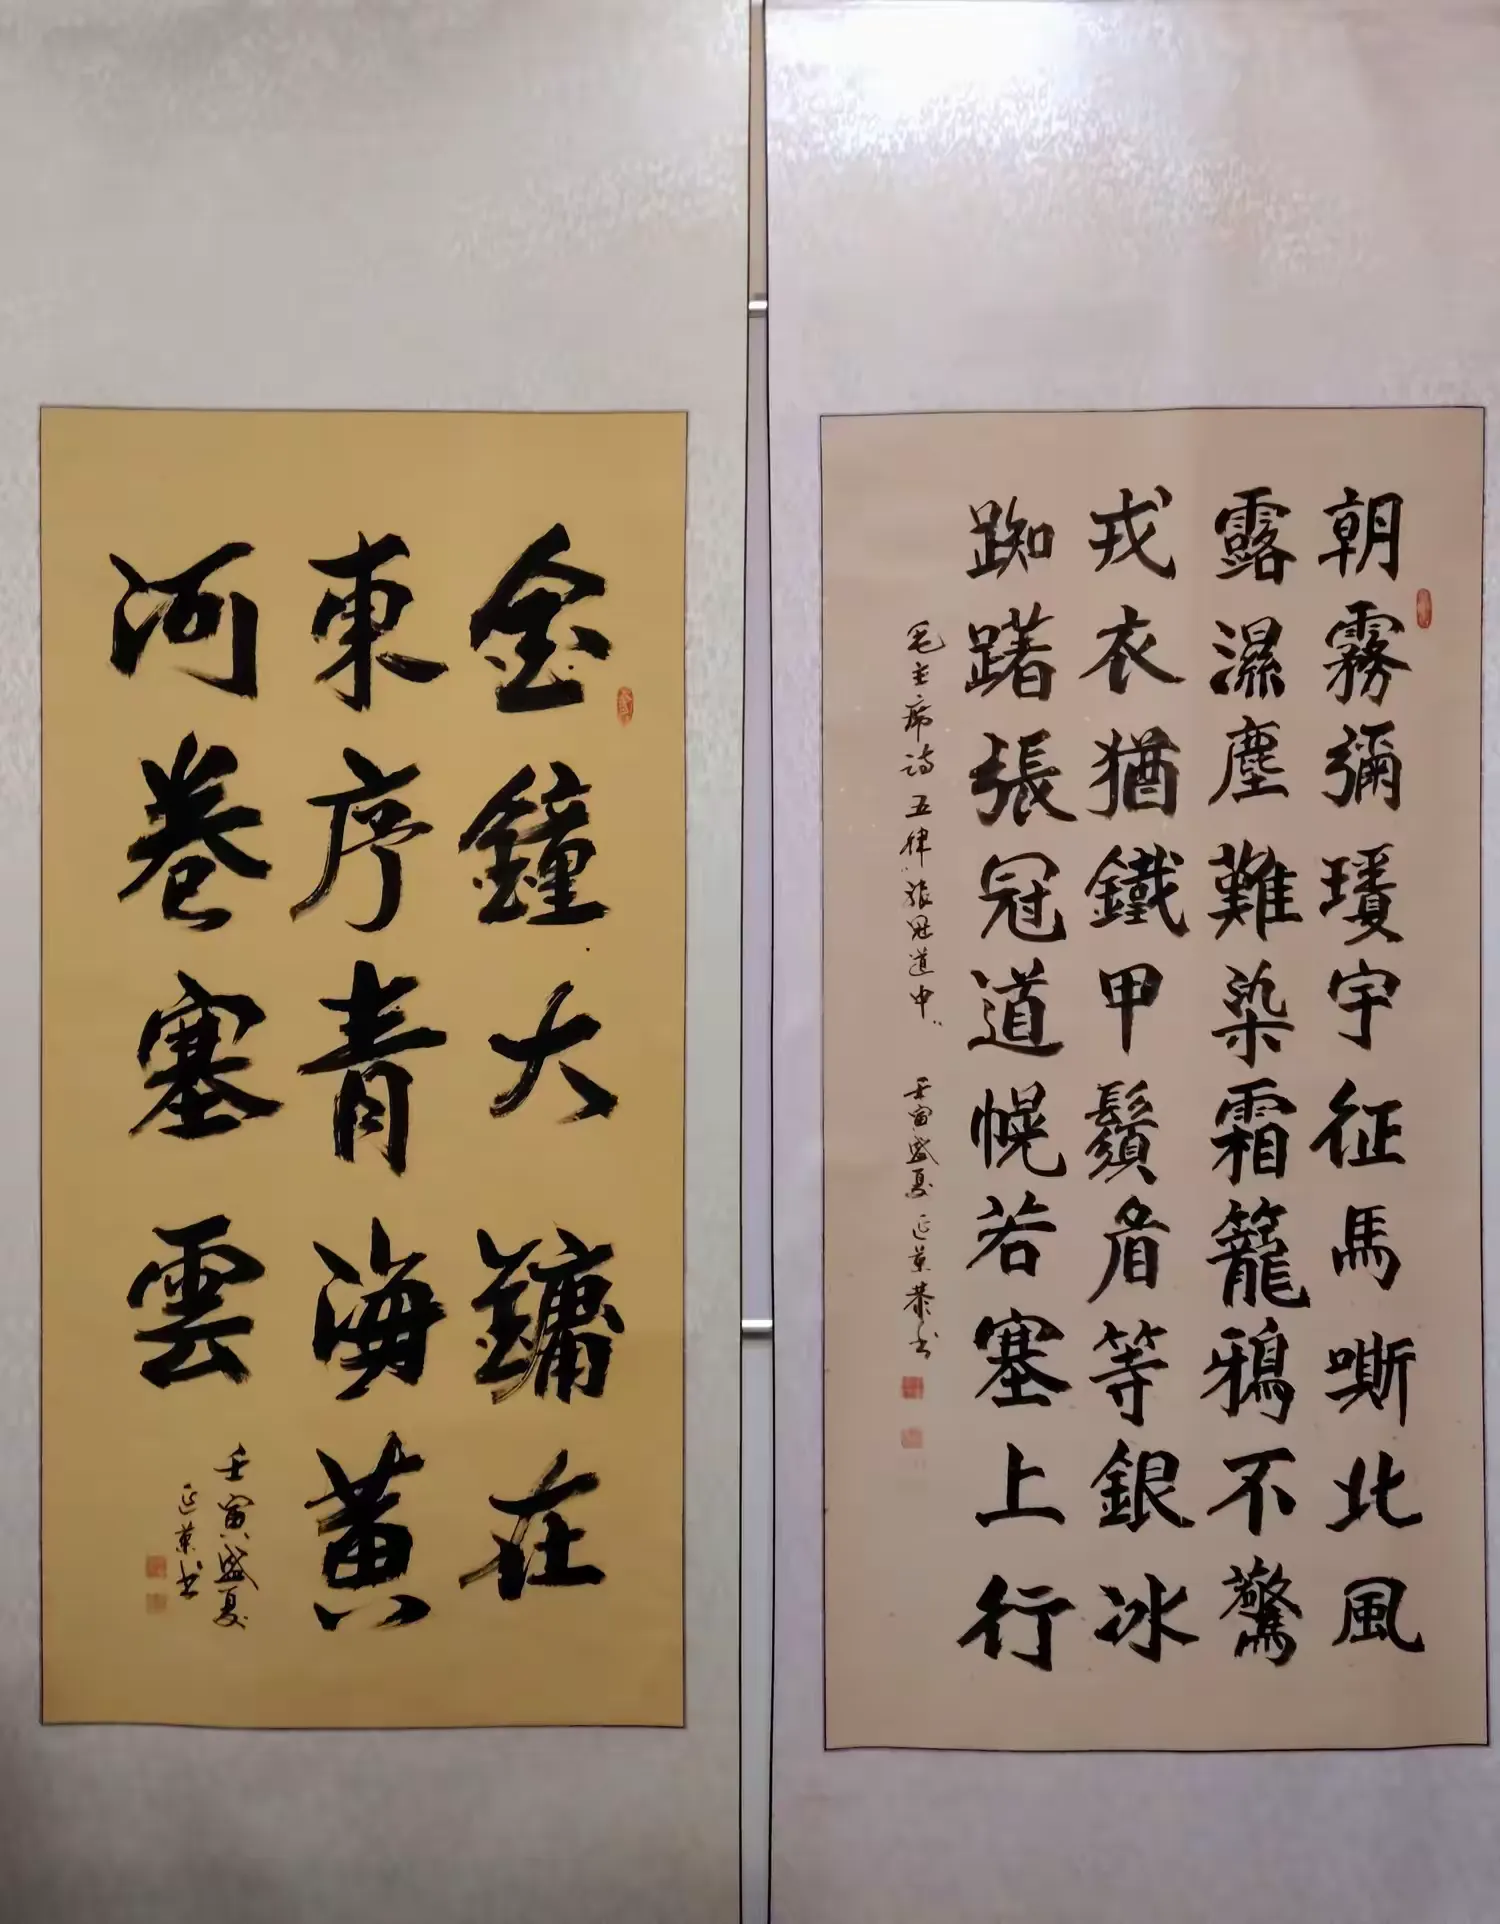 朝霧彌瓊宇征馬嘶北風
露濕塵難染霜籠鴉不驚
戎衣猶鐵甲鬚眉等銀冰
踟躇張冠道幌若塞上行
毛主席诗五律"張冠道中" 壬寅盛夏 延恭书
金鐘大鏞在
東序青海黃
河卷塞雲
壬寅盛夏
延书